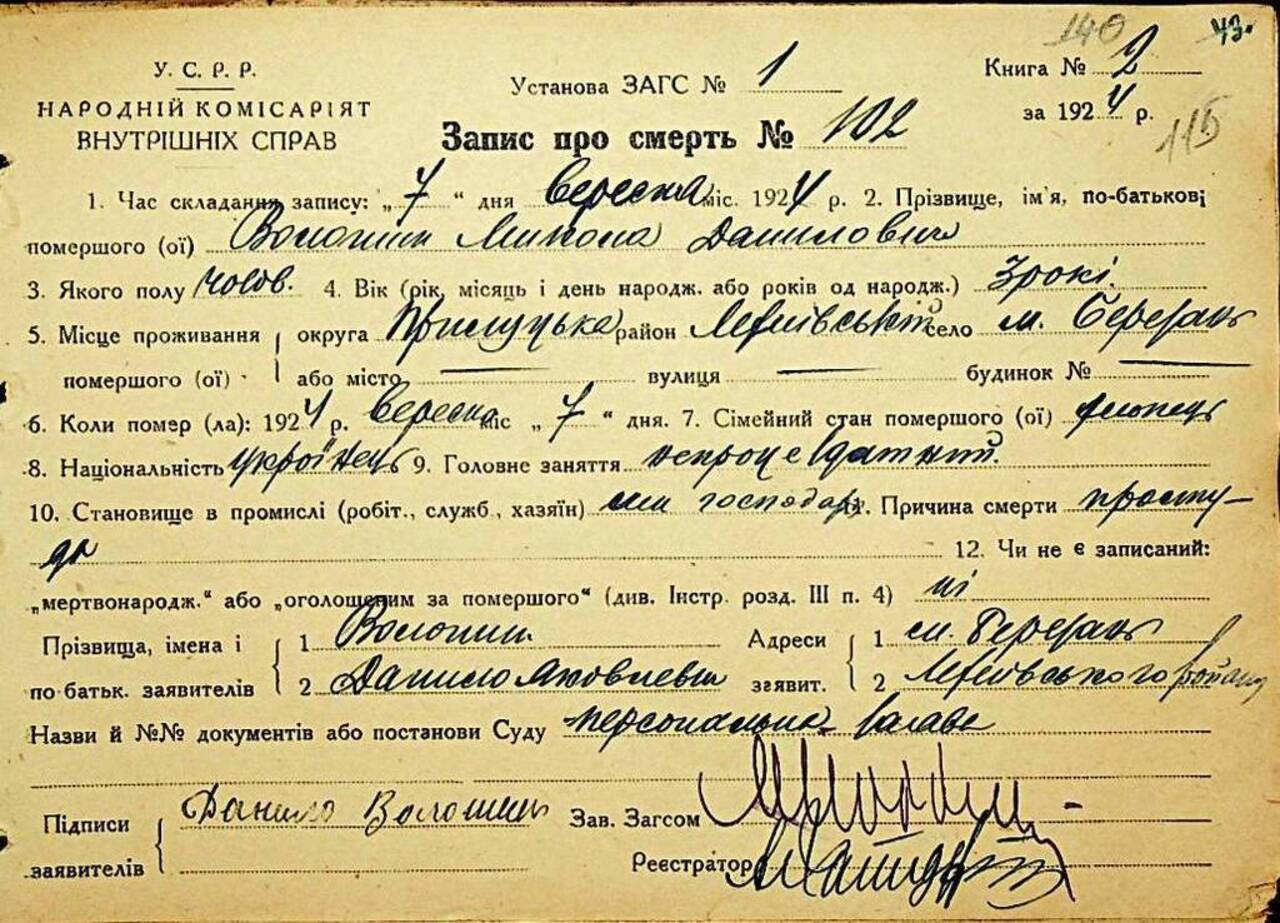 140 43.
У. С. Р. Р.
НАРОДНІЙ КОМІСАРІЯТ
ВНУТРІШНІХ СПРАВ
Установа ЗАГС № 1
Книга № 2
за 1924 р.
115
Запис про смерть № 102
1. Час складання запису: „7“ дня вересня міс. 1924 р. 2. Прізвище, ім'я, по-батькові
помершого (ої) Волошин Микола Данилович
3. Якого полу чолов. 4. Вік (рік, місяць і день народж. або років од народж.) 3 рокі.
5. Місце проживання округа Прилуцька район село м. Березань
помершого (ої) або місто — вулиця — будинок № —
6. Коли помер (ла): 1924 р. вересня міс „7“ дня. 7. Сімейний стан помершого (ої) хлопець
8. Національність українець 9. Головне заняття
10. Становище в промислі (робіт., служб., хазяїн) син господаря 11. Причина смерти просту-
да 12. Чи не є записаний:
„мертвонародж.“ або „оголошеним за помершого“ (див. Інстр. розд. III п. 4) ні
Прізвища, імена і 1 Волошин Адреси 1 м. Березань
по-батьк. заявителів 2 Данило Яковлевич заявит. 2 району
Назви й №№ документів або постанови Суду
Підписи Данило Волошин Зав. Загсом
заявителів Реєстратор